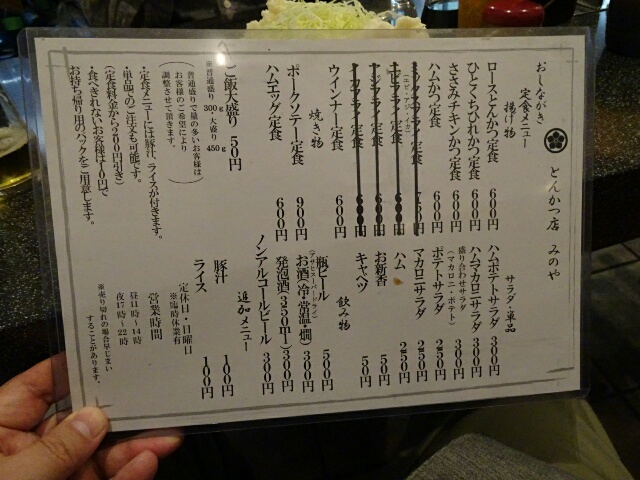 おしながき
とんかつ店 みのや
定食メニュー
揚げ物
ロースとんかつ定食 600円
ひとくちひれかつ定食 600円
ささみチキンかつ定食 600円
ハムかつ定食 600円
(エビ・アジ・イカ)
定食 600円
定食 600円
ウインナー定食 600円
焼き物
ポークソテー定食 900円
ハムエッグ定食 600円
ご飯大盛り 50円
※普通盛り 300g・大盛り 450g
(普通盛りで量の多いお客様は
お客様のご希望により
調整させて頂きます。)
・定食メニューには豚汁、ライスが付きます。
・単品でのご注文も可能です。
(定食料金から200円引き)
・食べきれないお客様は10円で
お持ち帰り用のパックをご用意します。
サラダ・単品
ハムポテトサラダ 300円
ハムマカロニサラダ 300円
盛り合わせサラダ 300円
(マカロニ・ポテト)
ポテトサラダ 250円
マカロニサラダ 250円
ハム 250円
お新香 50円
キャベツ 50円
飲み物
瓶ビール 500円
(アサヒスーパードライ)
お酒(冷・常温・燗) 300円
発泡酒(350ml) 300円
ノンアルコールビール 300円
追加メニュー
豚汁 100円
ライス 100円
定休日・日曜日
※臨時休業有
営業時間
昼11時〜14時
夜17時〜22時
※売り切れの場合早じまい
することがあります。